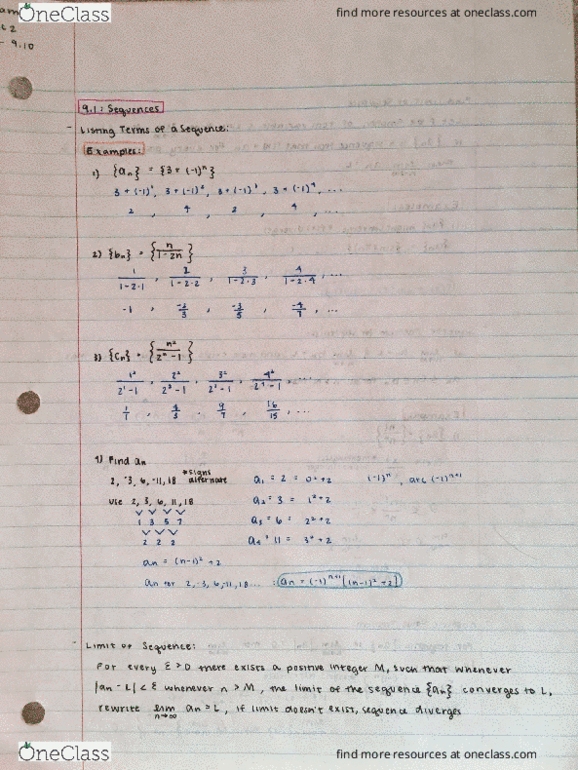 OneClass
find more resources at oneclass.com
- 9.10
9.1: Sequences
- Listing Terms of a Sequence:
Examples:
1) {an} = {3 + (-1)^n}
3 + (-1)^1, 3 + (-1)^2, 3 + (-1)^3, 3 + (-1)^4, ...
2, 4, 2, 4, ...
2) {bn} = {n/(1-2n)}
1/(1-2·1), 2/(1-2·2), 3/(1-2·3), 4/(1-2·4), ...
-1, -2/3, -3/5, -4/7, ...
3) {Cn} = {n²/(2^n - 1)}
1²/(2^1 - 1), 2²/(2² - 1), 3²/(2³ - 1), 4²/(2^4 - 1), ...
1/1, 4/3, 9/7, 16/15, ...
4) Find an
2, -3, 6, -11, 18 *signs alternate
use 2, 3, 6, 11, 18
1 3 5 7
2 2 2
an = (n-1)² + 2
a1 = 2 = 0² + 2
a2 = 3 = 1² + 2
a3 = 6 = 2² + 2
a4 = 11 = 3² + 2
(-1)^n, (-1)^n+1
an for 2, -3, 6, -11, 18... : an = (-1)^n+1 [(n-1)² + 2]
- Limit of Sequence:
For every ε > 0 there exists a positive integer M, such that whenever
|an - L| < ε whenever n > M, the limit of the sequence {an} converges to L,
rewrite lim n→∞ an = L, if limit doesn't exist, sequence diverges
OneClass
find more resources at oneclass.com